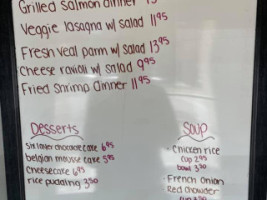 Grilled Salmon dinner
Veggie lasagna w/ salad 11⁹⁵
Fresh veal parm w/ salad 13⁹⁵
Cheese ravioli w/ salad 9⁹⁵
Fried Shrimp dinner 11⁹⁵
Desserts
Six layer chocolate cake 6⁹⁵
belgian mousse cake 5⁹⁵
Cheesecake 6⁹⁵
rice pudding 3⁵⁰
Soup
- Chicken rice
cup 2⁹⁵
bowl 3⁵⁰
- French onion
Red Chowder